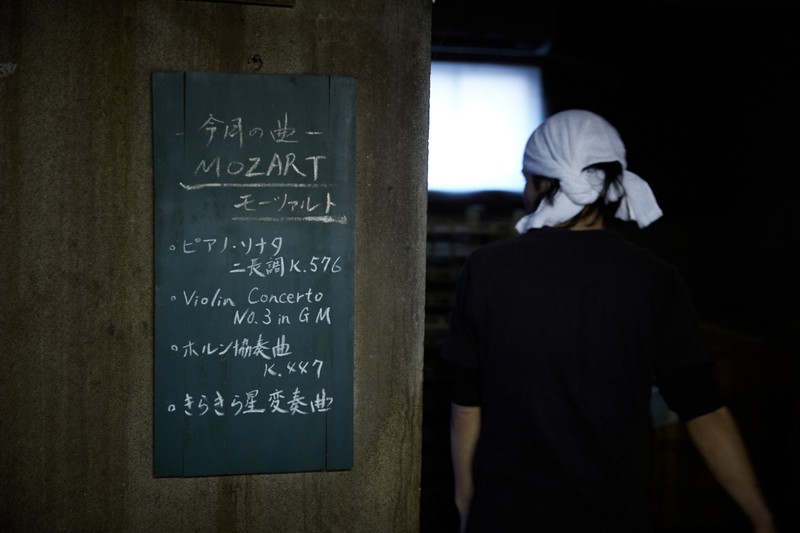 －今月の曲－
MOZART
モーツァルト
○ピアノ・ソナタ
ニ長調 K.576
○Violin Concerto
No.3 in G M
○ホルン協奏曲
K.447
○きらきら星変奏曲